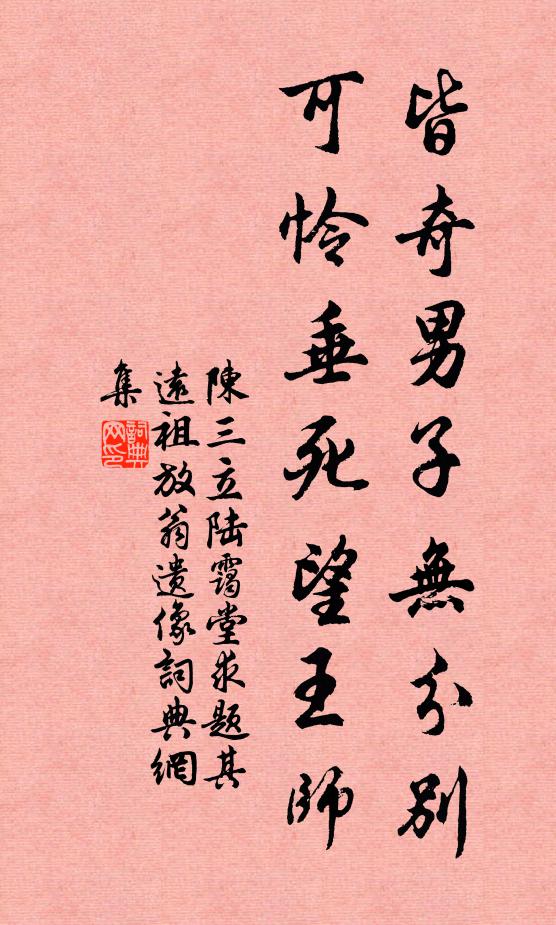 皆奇男子無分別
可憐垂死望王師
陳三立陆靄堂求题其
遠祖放翁遗像詞典網
集
詞典
网印